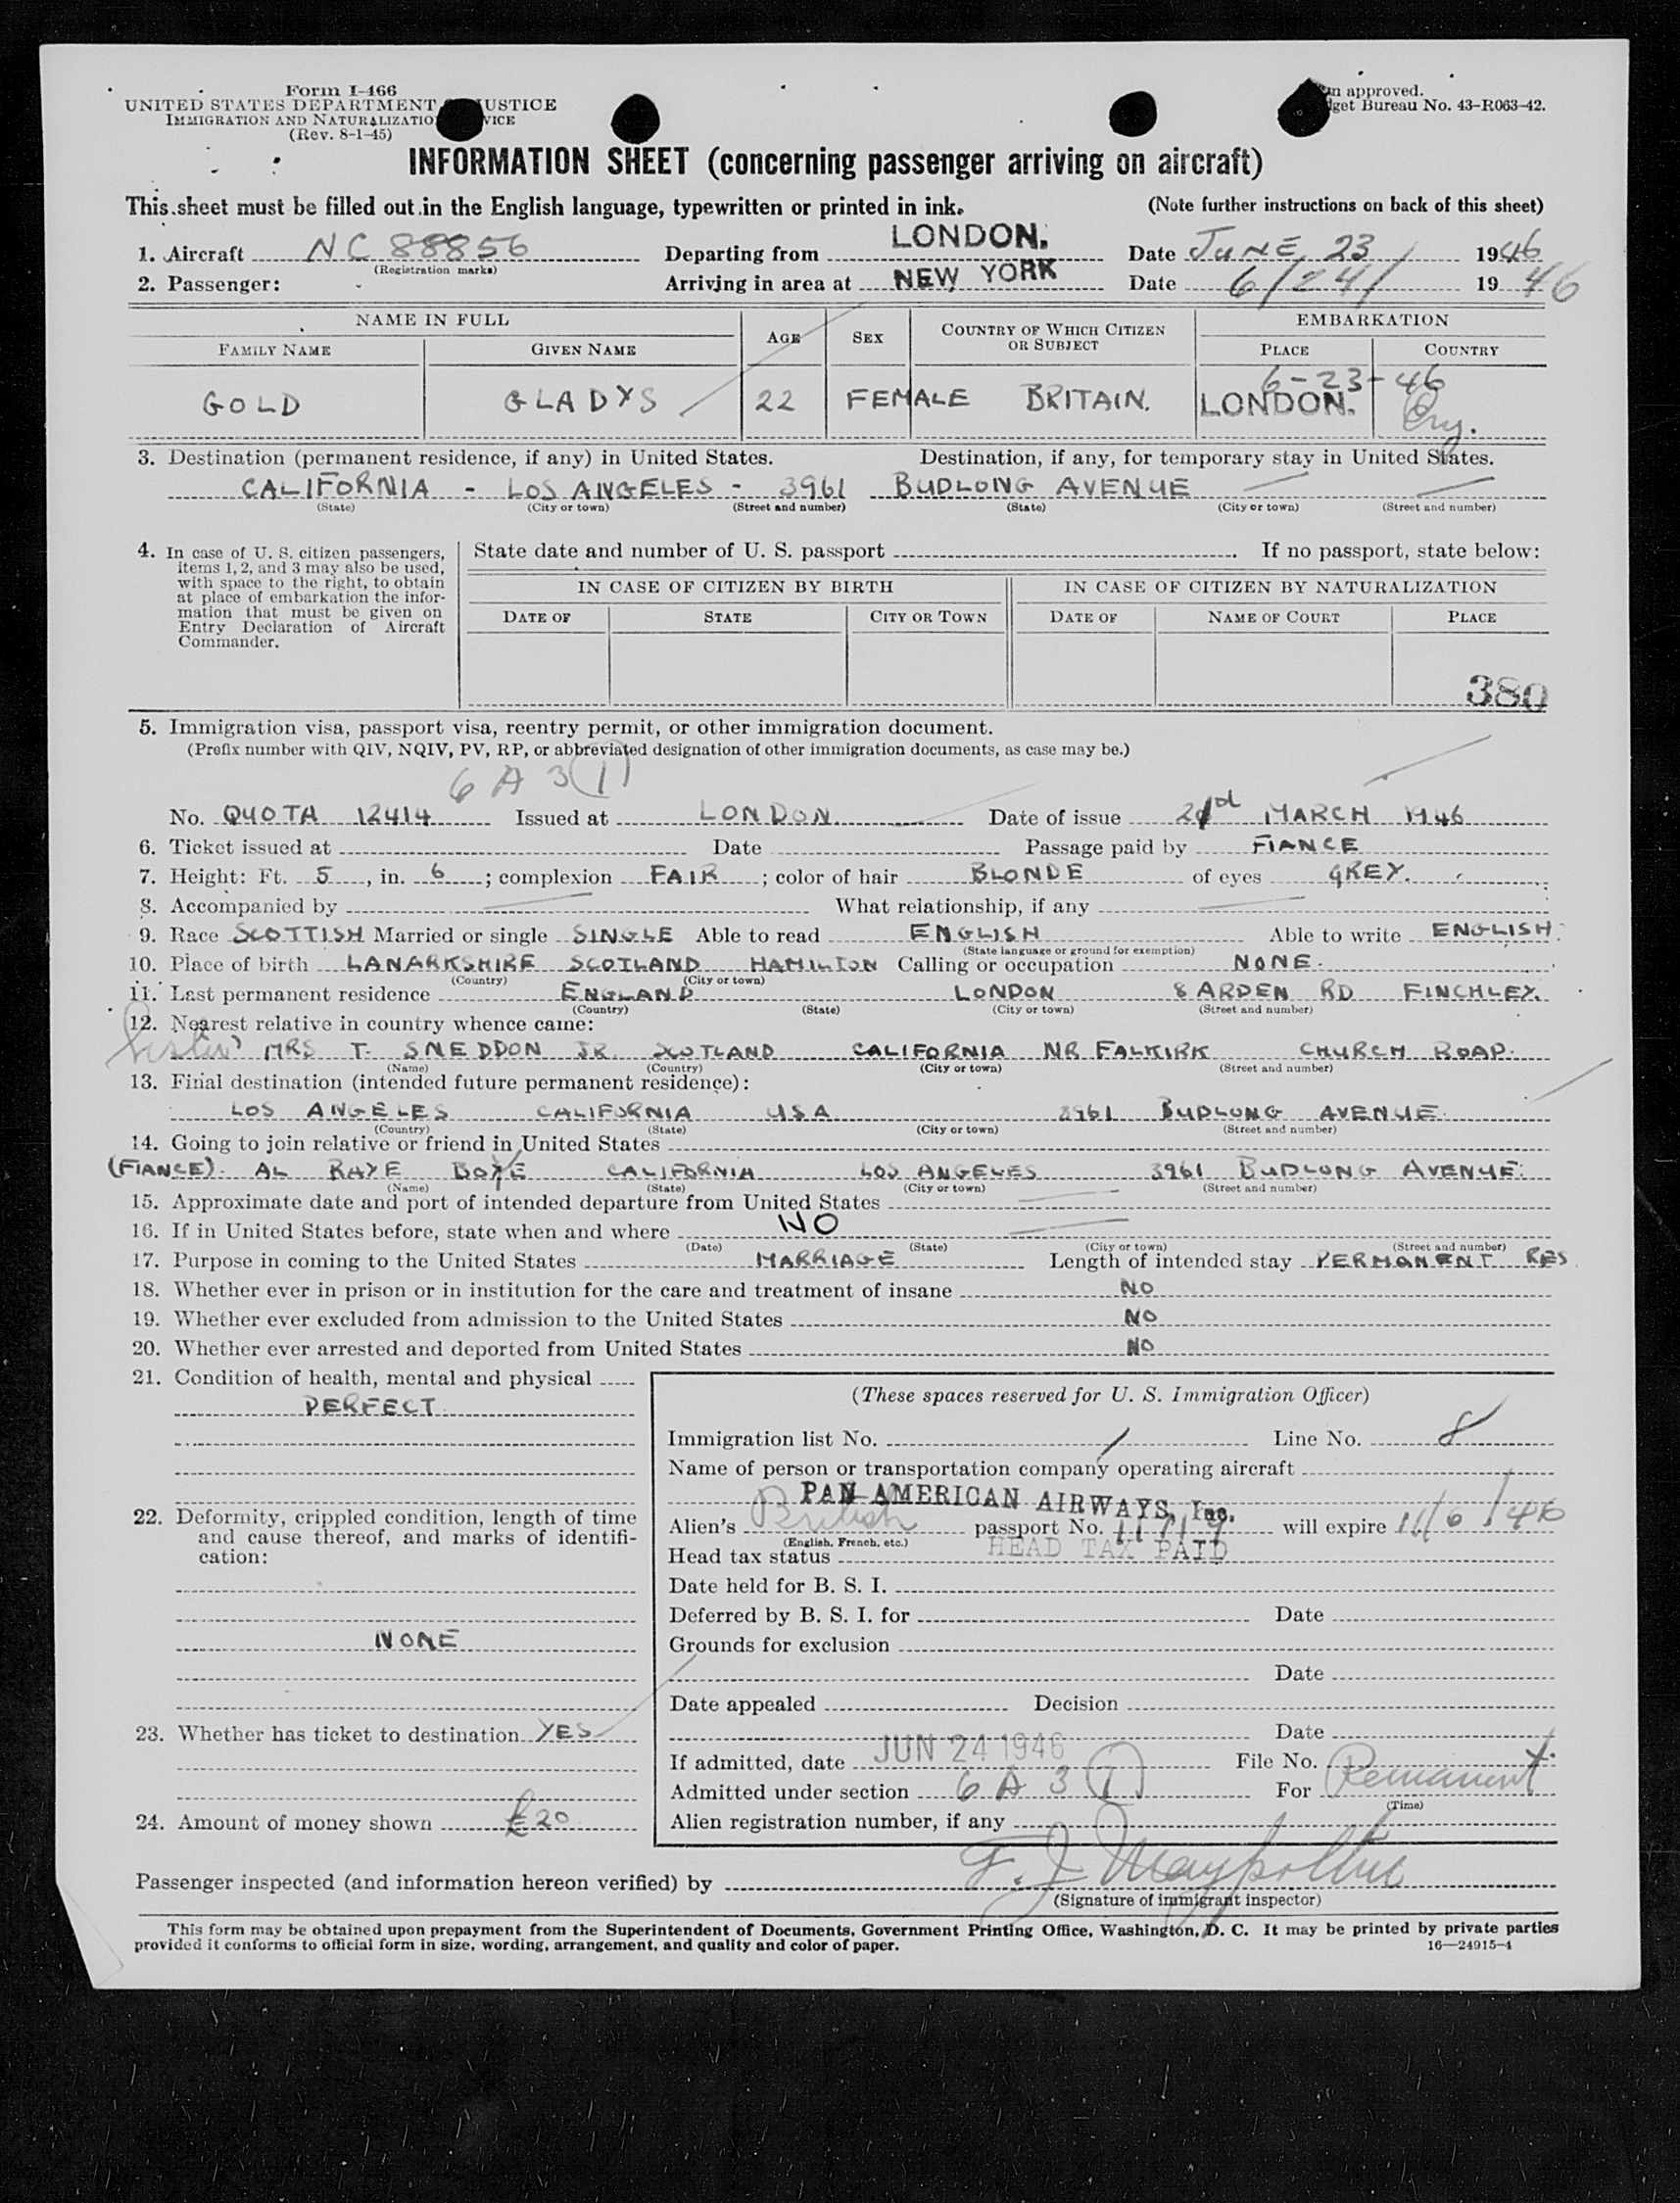 Form I-466
UNITED STATES DEPARTMENT USTICE
IMMIGRATION AND NATURALIZATIO VICE
(Rev. 8-1-45)
m approved.
dget Bureau No. 43-R063-42.
INFORMATION SHEET (concerning passenger arriving on aircraft)
This sheet must be filled out in the English language, typewritten or printed in ink. (Note further instructions on back of this sheet)
1. Aircraft NC 88856 Departing from LONDON. Date JUNE 23 1946
(Registration marks)
2. Passenger: Arriving in area at NEW YORK Date 6/24/ 1946
NAME IN FULL AGE SEX COUNTRY OF WHICH CITIZEN OR SUBJECT EMBARKATION
FAMILY NAME GIVEN NAME PLACE COUNTRY
6-23-46
GOLD GLADYS 22 FEMALE BRITAIN. LONDON. Eng.
3. Destination (permanent residence, if any) in United States. Destination, if any, for temporary stay in United States.
CALIFORNIA - LOS ANGELES - 3961 BUDLONG AVENUE
(State) (City or town) (Street and number) (State) (City or town) (Street and number)
4. In case of U. S. citizen passengers, items 1, 2, and 3 may also be used, with space to the right, to obtain at place of embarkation the information that must be given on Entry Declaration of Aircraft Commander.
State date and number of U. S. passport . If no passport, state below:
IN CASE OF CITIZEN BY BIRTH IN CASE OF CITIZEN BY NATURALIZATION
DATE OF STATE CITY OR TOWN DATE OF NAME OF COURT PLACE
380
5. Immigration visa, passport visa, reentry permit, or other immigration document.
(Prefix number with QIV, NQIV, PV, RP, or abbreviated designation of other immigration documents, as case may be.)
6 A 3 (1)
No. QUOTA 12414 Issued at LONDON Date of issue MARCH 1946
6. Ticket issued at Date Passage paid by FIANCE
7. Height: Ft. 5, in. 6; complexion FAIR; color of hair BLONDE of eyes GREY.
8. Accompanied by What relationship, if any
9. Race SCOTTISH Married or single SINGLE Able to read ENGLISH Able to write ENGLISH.
(State language or ground for exemption)
10. Place of birth LANARKSHIRE SCOTLAND HAMILTON Calling or occupation NONE.
(Country) (City or town)
11. Last permanent residence ENGLAND LONDON 8 ARDEN RD FINCHLEY.
(Country) (State) (City or town) (Street and number)
12. Nearest relative in country whence came:
Sister MRS T. SNEDDON JR. SCOTLAND CALIFORNIA NR FALKIRK CHURCH ROAD.
(Name) (Country) (City or town) (Street and number)
13. Final destination (intended future permanent residence):
LOS ANGELES CALIFORNIA USA 3961 BUDLONG AVENUE.
(Country) (State) (City or town) (Street and number)
14. Going to join relative or friend in United States
(FIANCE). AL RAYE BOYE CALIFORNIA LOS ANGELES 3961 BUDLONG AVENUE.
(Name) (State) (City or town) (Street and number)
15. Approximate date and port of intended departure from United States
16. If in United States before, state when and where NO
(Date) (State) (City or town) (Street and number)
17. Purpose in coming to the United States MARRIAGE Length of intended stay PERMANENT RES
18. Whether ever in prison or in institution for the care and treatment of insane NO
19. Whether ever excluded from admission to the United States NO
20. Whether ever arrested and deported from United States NO
21. Condition of health, mental and physical
PERFECT
22. Deformity, crippled condition, length of time and cause thereof, and marks of identification:
NONE
23. Whether has ticket to destination YES
24. Amount of money shown £20
(These spaces reserved for U. S. Immigration Officer)
Immigration list No. 1 Line No. 8
Name of person or transportation company operating aircraft
PAN AMERICAN AIRWAYS, Inc.
Alien's British passport No. will expire
(English, French, etc.)
Head tax status HEAD TAX PAID
Date held for B. S. I.
Deferred by B. S. I. for Date
Grounds for exclusion
Date
Date appealed Decision
Date
If admitted, date JUN 24 1946 File No.
Admitted under section 6 A 3 (1) For Permanent
(Time)
Alien registration number, if any
Passenger inspected (and information hereon verified) by F. J.
(Signature of immigrant inspector)
This form may be obtained upon prepayment from the Superintendent of Documents, Government Printing Office, Washington, D. C. It may be printed by private parties
provided it conforms to official form in size, wording, arrangement, and quality and color of paper. 16—24915-4